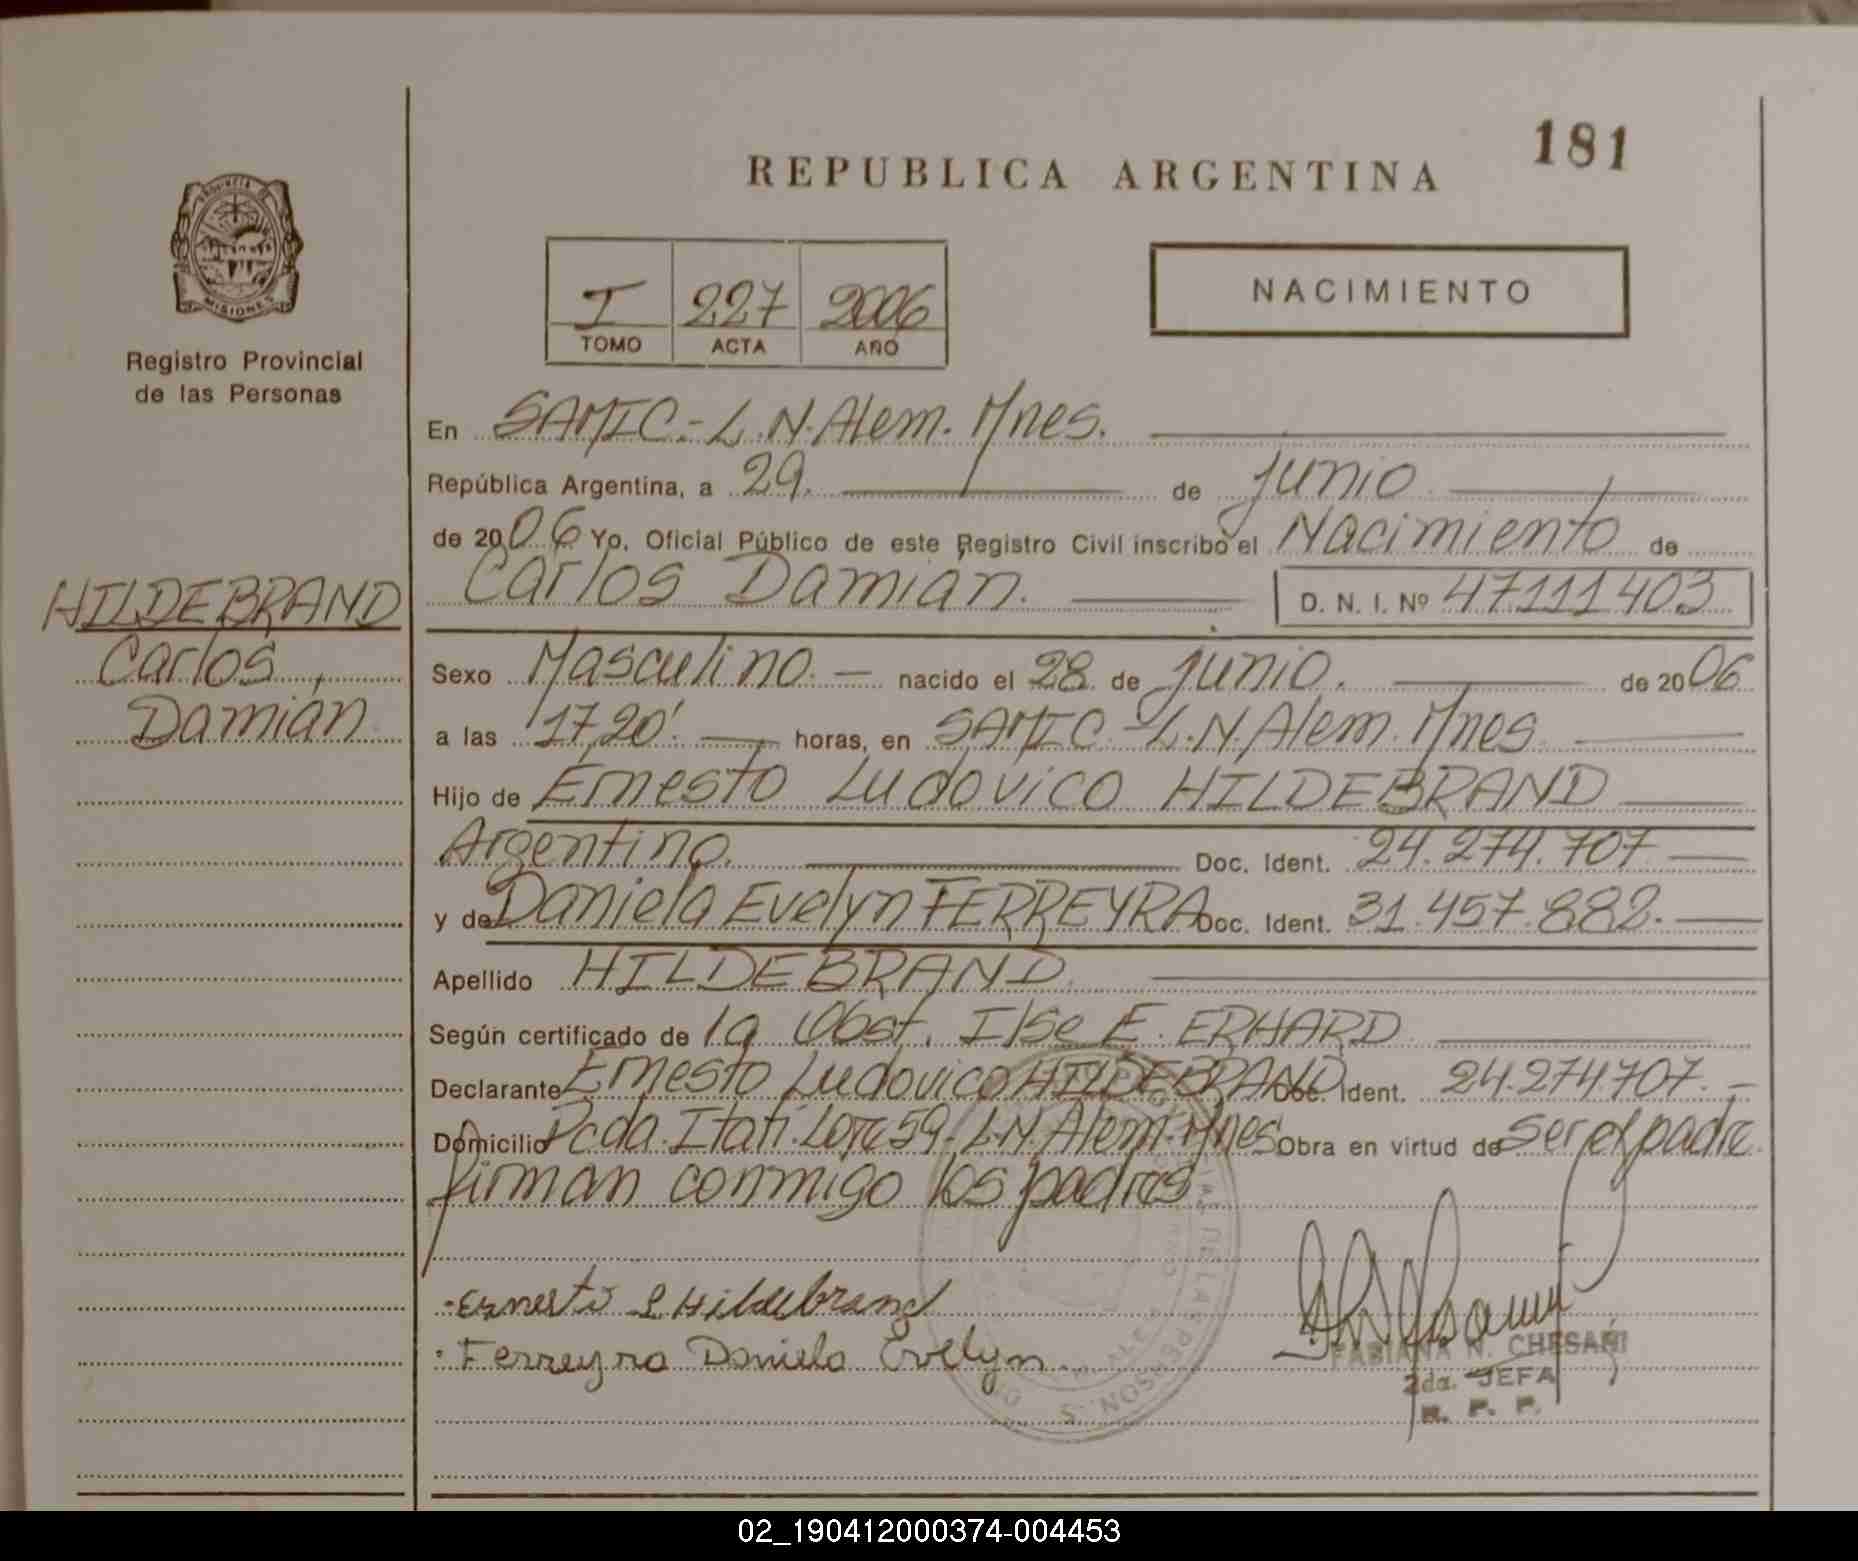 181
REPUBLICA ARGENTINA
PROVINCIA DE
MISIONES
Registro Provincial
de las Personas
I 227 2006
TOMO ACTA AÑO
NACIMIENTO
En SAMIC.- L.N. Alem. Mnes.
República Argentina, a 29. de junio
de 2006 Yo, Oficial Público de este Registro Civil inscribo el Nacimiento de
Carlos Damián. D. N. I. Nº 47111403
HILDEBRAND
Carlos
Damián
Sexo Masculino. nacido el 28 de junio. de 2006
a las 17,20'. horas, en SAMIC.-L.N. Alem. Mnes
Hijo de Ernesto Ludovico HILDEBRAND
Argentino. Doc. Ident. 24.274.707
y de Daniela Evelyn FERREYRA Doc. Ident. 31.457.882.
Apellido HILDEBRAND.
Según certificado de la Obst. Ilse E. ERHARD
Declarante Ernesto Ludovico HILDEBRAND Doc. Ident. 24.274.707.
Domicilio Pcda. Itatí. Lote 59- L.N. Alem- Mnes Obra en virtud de ser el padre
firman conmigo los padres
Ernesto L Hildebrand
Ferreyra Daniela Evelyn.
FABIANA N. CHESANI
2da. JEFA
R. P. P.
02_190412000374-004453